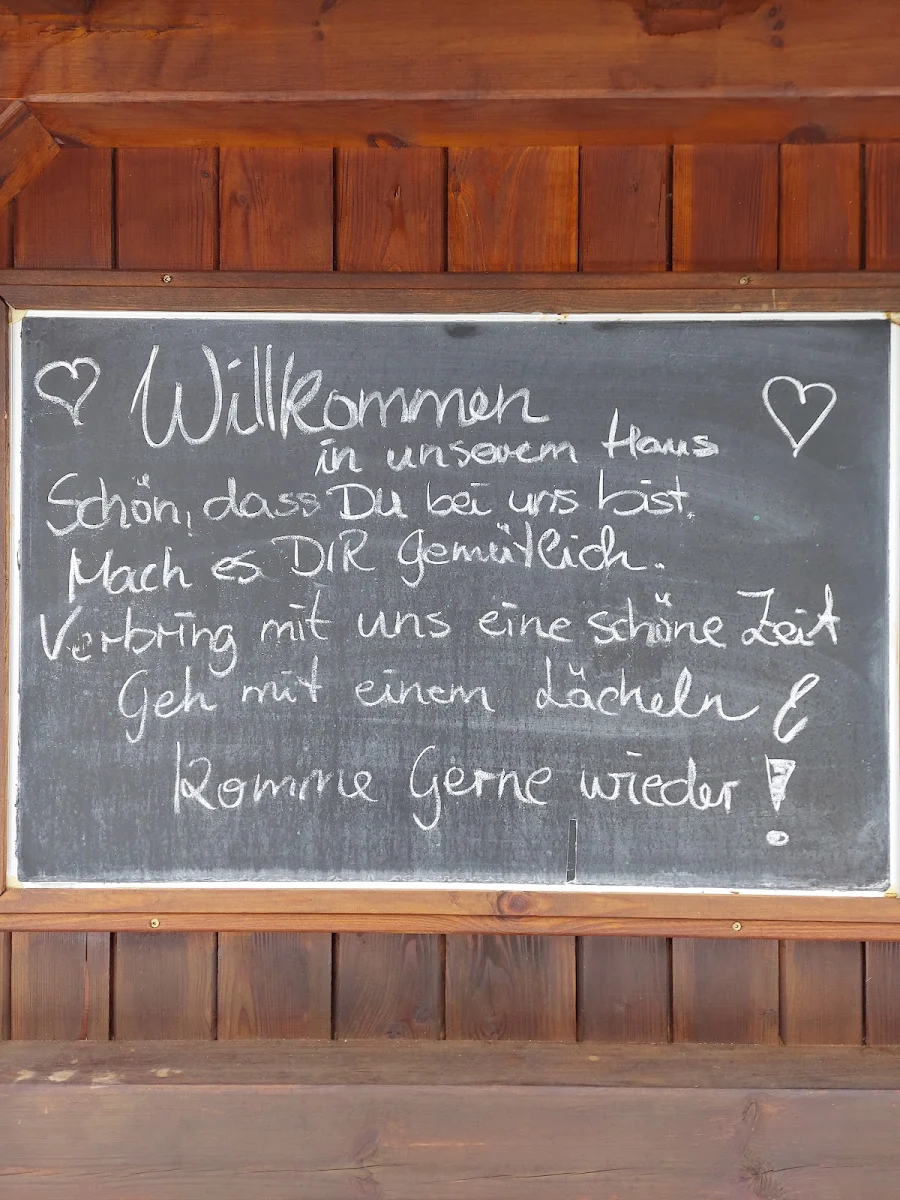 Willkommen
in unserem Haus
Schön, dass Du bei uns bist.
Mach es DIR gemütlich.
Verbring mit uns eine schöne Zeit
Geh mit einem Lächeln &
komme Gerne wieder!